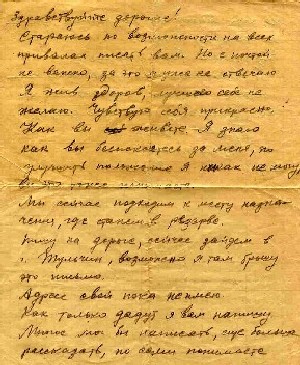 Здравствуйте дорогие!
Стараюсь по возможности на всех
привалах писать вам. Но с почтой
не важно, за это я уже не отвечаю
Я жив здоров, лучшего себе не
желаю. Чувствую себя прекрасно.
Как вы живете. Я знаю
как вы беспокоитесь за меня, но
положение я никак не могу
Мы сейчас подходим к месту назна-
чения, где станем в резерве.
Пишу на дороге, сейчас зайдем в
г. Тульчин, возможно я там брошу
это письмо.
Адреса свой пока не имею.
Как только дадут я вам напишу
Много мог бы написать, еще больше
рассказать, но сами понимаете